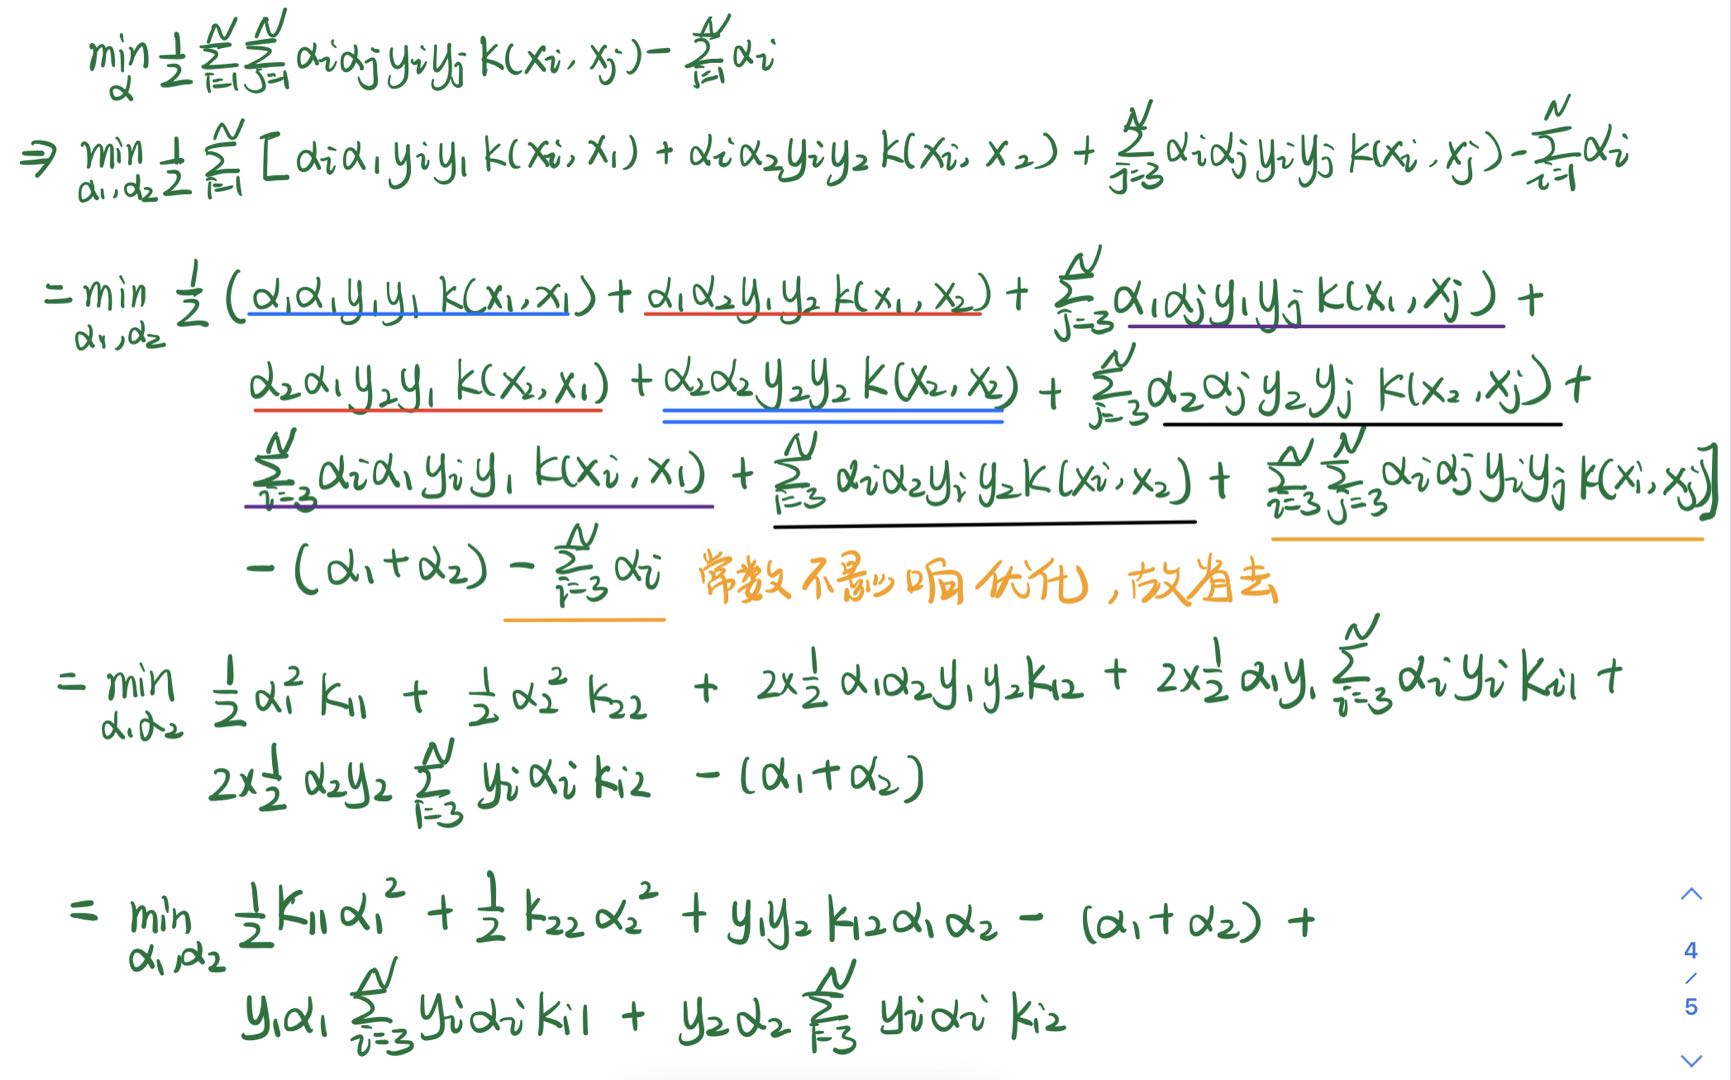 min_α 1/2 Σ_{i=1}^N Σ_{j=1}^N αiαjyiyj k(xi, xj) − Σ_{i=1}^N αi
⇒ min_{α1,α2} 1/2 Σ_{i=1}^N [αiα1yiy1 k(xi, x1) + αiα2yiy2 k(xi, x2) + Σ_{j=3}^N αiαjyiyj k(xi, xj) − Σ_{i=1}^N αi
= min_{α1,α2} 1/2 (α1α1y1y1 k(x1,x1) + α1α2y1y2 k(x1, x2) + Σ_{j=3}^N α1αjy1yj k(x1, xj) +
α2α1y2y1 k(x2, x1) + α2α2y2y2 k(x2, x2) + Σ_{j=3}^N α2αjy2yj k(x2, xj) +
Σ_{i=3}^N αiα1yiy1 k(xi, x1) + Σ_{i=3}^N αiα2yiy2 k(xi, x2) + Σ_{i=3}^N Σ_{j=3}^N αiαjyiyj k(xi, xj)]
− (α1+α2) − Σ_{i=3}^N αi 常数不影响优化,故省去
= min_{α1α2} 1/2 α1² k11 + 1/2 α2² k22 + 2×1/2 α1α2y1y2k12 + 2×1/2 α1y1 Σ_{i=3}^N αiyiki1 +
2×1/2 α2y2 Σ_{i=3}^N yiαiki2 − (α1+α2)
= min_{α1,α2} 1/2 k11α1² + 1/2 k22α2² + y1y2k12α1α2 − (α1+α2) +
y1α1 Σ_{i=3}^N yiαiki1 + y2α2 Σ_{i=3}^N yiαi ki2
4
/
5